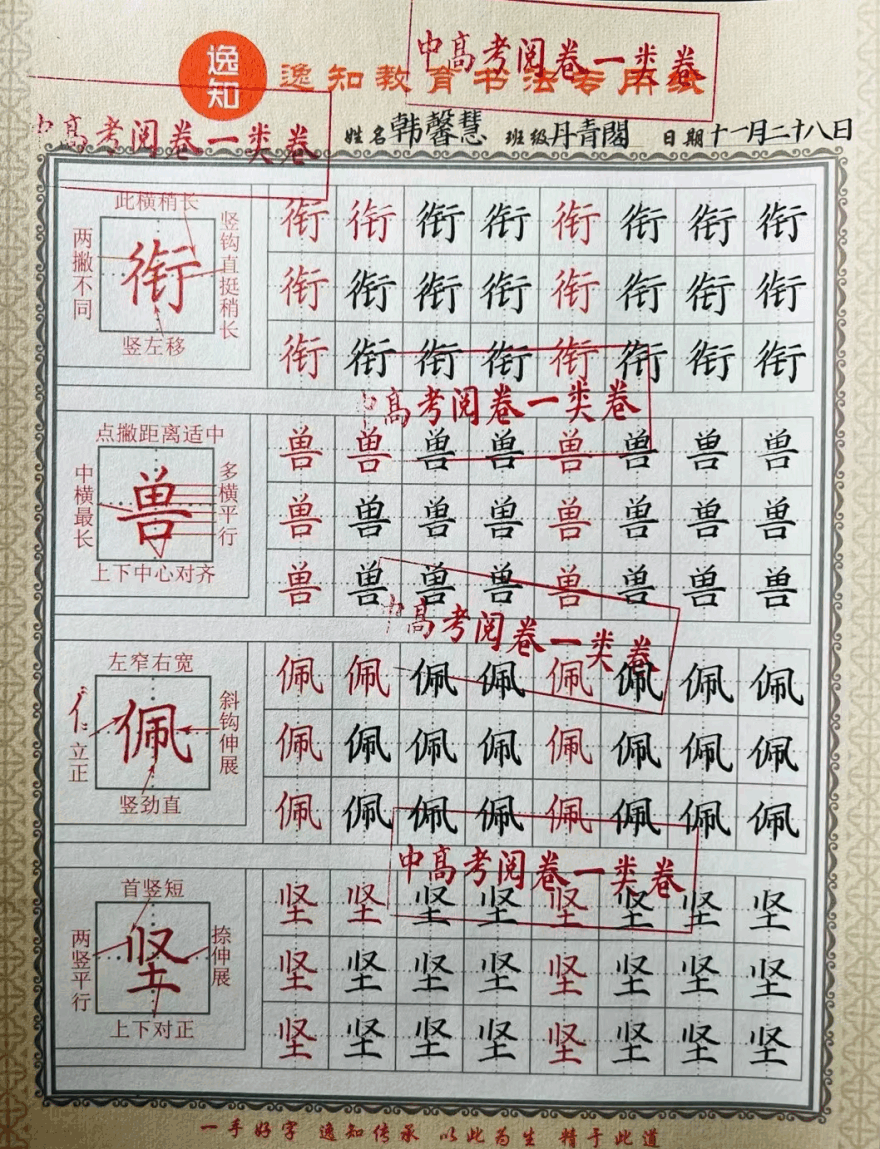 中高考阅卷一类卷
逸知
逸知教育书法专用纸
中高考阅卷一类卷
姓名韩馨慧 班级丹青阁 日期十一月二十八日
此横稍长
两撇不同
衔
竖钩直挺稍长
竖左移
衔衔衔衔衔衔衔衔
衔衔衔衔衔衔衔衔
衔衔衔衔衔衔衔衔
中高考阅卷一类卷
点撇距离适中
中横最长
兽
多横平行
上下中心对齐
兽兽兽兽兽兽兽兽
兽兽兽兽兽兽兽兽
兽兽兽兽兽兽兽兽
中高考阅卷一类卷
左窄右宽
亻立正
佩
斜钩伸展
竖劲直
佩佩佩佩佩佩佩佩
佩佩佩佩佩佩佩佩
佩佩佩佩佩佩佩佩
中高考阅卷一类卷
首竖短
两竖平行
坚
捺伸展
上下对正
坚坚坚坚坚坚坚坚
坚坚坚坚坚坚坚坚
坚坚坚坚坚坚坚坚
一手好字 逸知传承 以此为生 精于此道